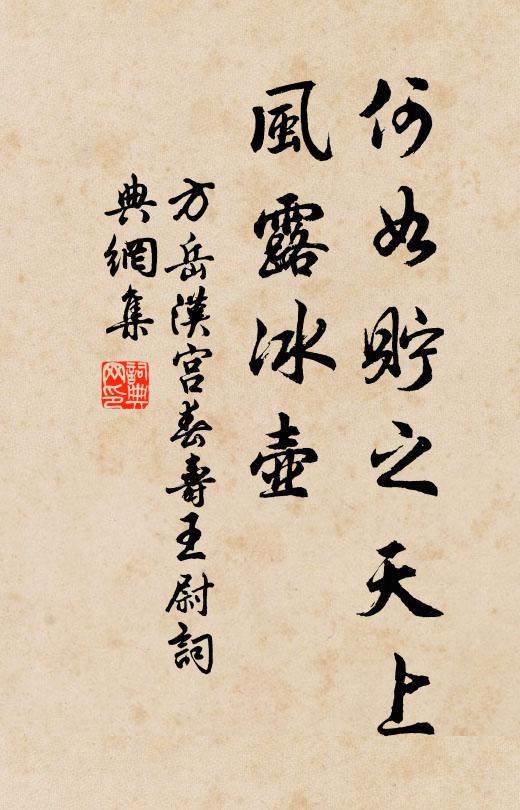 何如貯之天上
風露冰壺
方岳漢宮春壽王尉詞
典網集
詞典網印